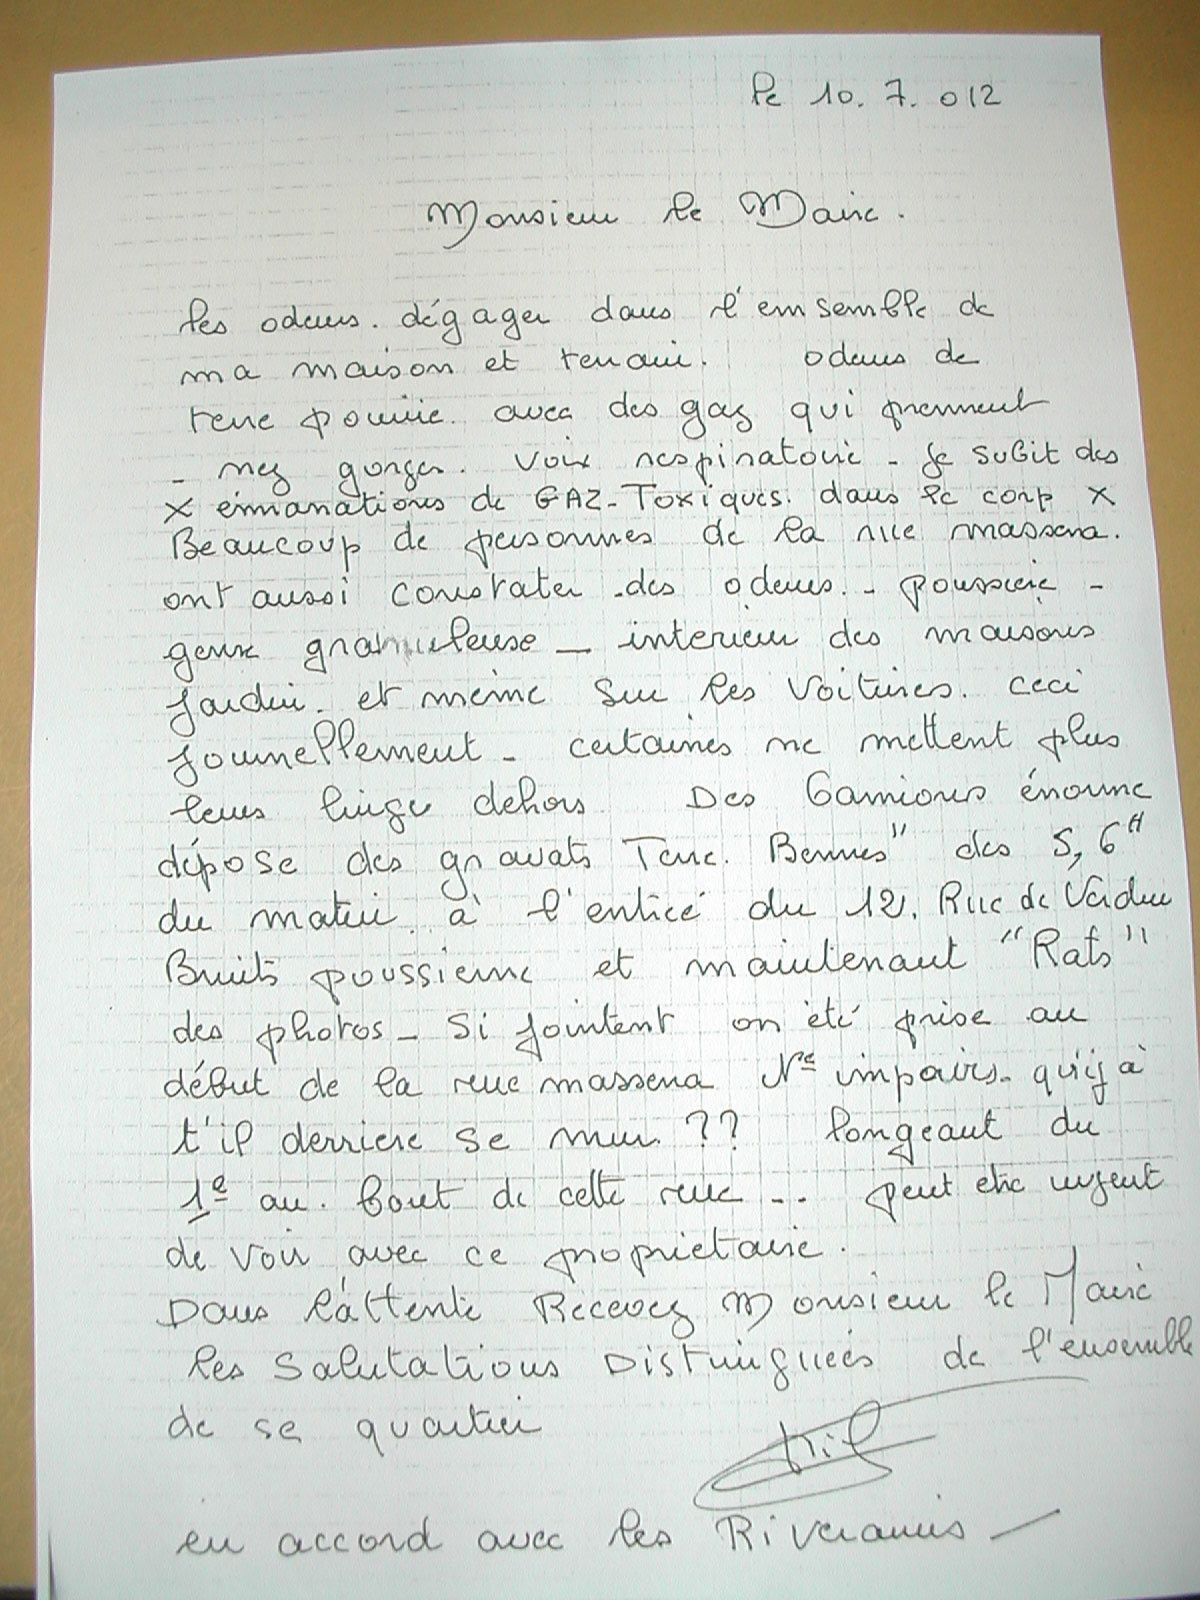 le 10. 7. 012
Monsieur le Maire.
les odeurs. dégager dans l'ensemble de
ma maison et terrain. odeurs de
terre pourrie. avec des gaz qui prennent
- nez gorges. Voix respiratoire - je subit des
x émanations de GAZ-Toxiques. dans le corp x
Beaucoup de personnes de la rue massena.
ont aussi constater - des odeurs. - poussiere -
geux granuleuse - interieur des maisons
jardin. et même sur les voitures. ceci
journellement - certaines ne mettent plus
leurs linge dehors Des Camions énorme
dépose des gravats Terre. Bennes" des 5, 6H
du matin. à l'entrée du 12. Rue de Verdun
Bruits poussierre et maintenant "Rats"
des photos - si jointent on été prise au
début de la rue massena N° impairs. qu'ij à
t'il derriere se mur. ?? longeant du
1e au. bout de cette rue -.. peut etre urgent
de voir avec ce proprietaire.
Dans l'attente Recevez Monsieur le Maire
les Salutations Distinguées de l'ensemble
de se quartier
en accord avec les Riverains -